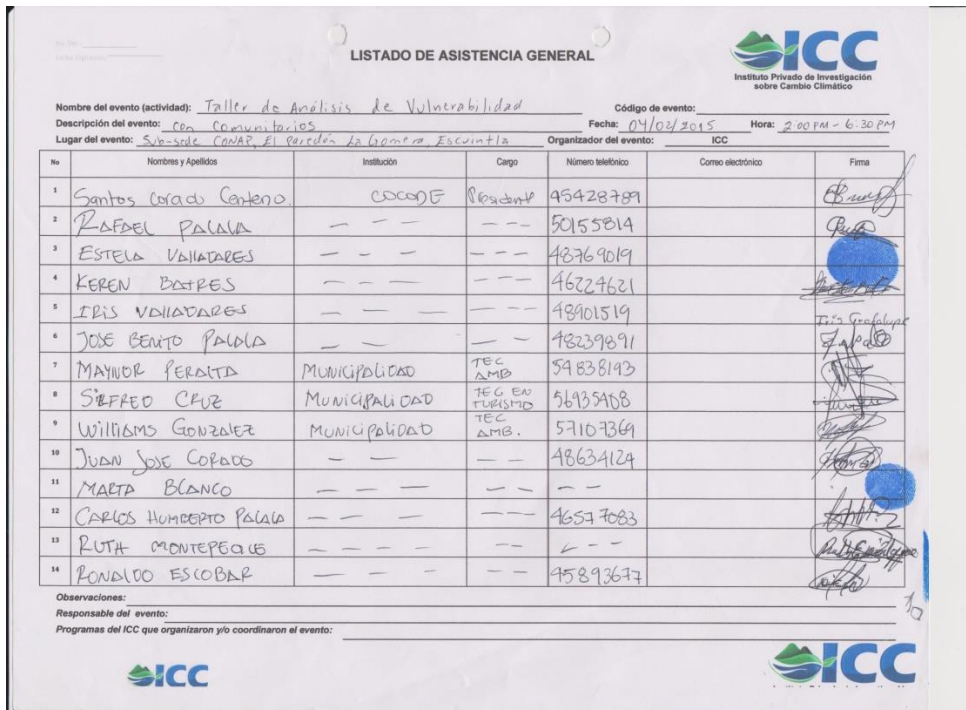 LISTADO DE ASISTENCIA GENERAL
ICC
Instituto Privado de Investigación
sobre Cambio Climático
Nombre del evento (actividad): Taller de Análisis de Vulnerabilidad Código de evento:
Descripción del evento: con Comunitarios Fecha: 04/02/2015 Hora: 2:00 PM - 6:30 PM
Lugar del evento: Sub-sede CONAP, El paredón La Gomera, Escuintla Organizador del evento: ICC
No Nombres y Apellidos Institución Cargo Número telefónico Correo electrónico Firma
1 Santos Corado Centeno. COCODE Presidente 45428789
2 RAFAEL PALALA — — — — — — 50155814
3 ESTELA VALLADARES — — — — — — 48769019
4 KEREN BATRES — — — — — — 46224621
5 IRIS VALLADARES — — — — — — 48901519 Iris Guadalupe
6 JOSE BENITO PALALA — — — — 48239891
7 MAYNOR PERALTA MUNICIPALIDAD TEC AMB 54838193
8 SIEFREO CRUZ MUNICIPALIDAD TEC EN TURISMO 56935408
9 WILLIAMS GONZALEZ MUNICIPALIDAD TEC AMB. 57107369
10 JUAN JOSE CORADO — — — — 48634124
11 MARTA BLANCO — — — — — — —
12 CARLOS HUMBERTO PALALA — — — — — — 46577083
13 RUTH MONTEPEQUE — — — — — — — — —
14 RONALDO ESCOBAR — — — — — — 45893677
Observaciones:
Responsable del evento:
Programas del ICC que organizaron y/o coordinaron el evento:
ICC
ICC